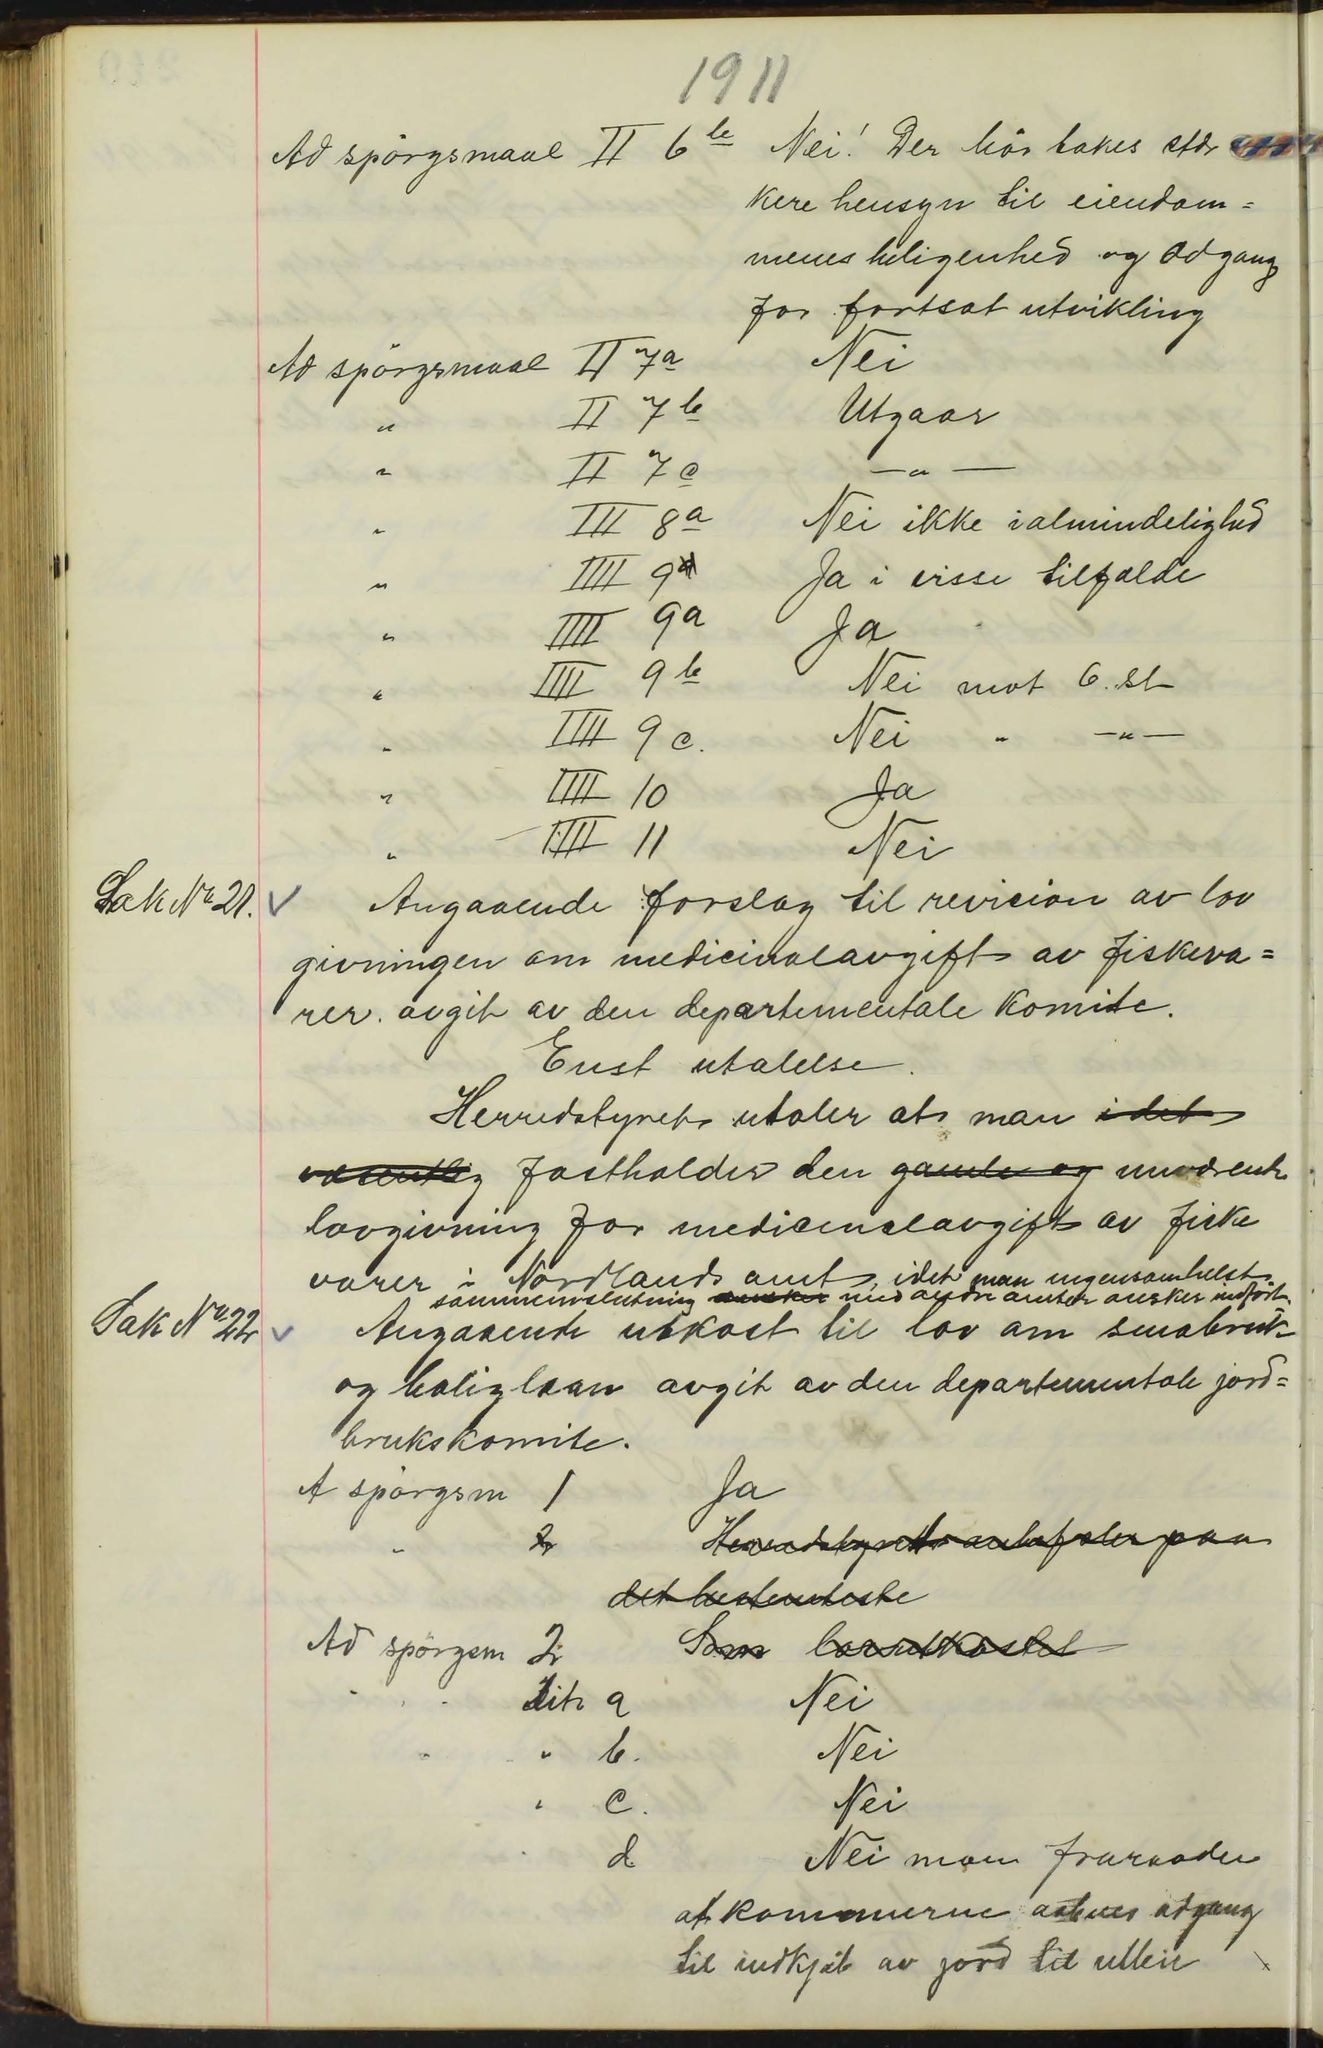 1911
Ad spörgsmaal II 6 b Nei! Der bör takes stær
kere hensyn til eiendom=
menes beligenhed og Adgang
for fortsat utvikling
Ad spörgsmaal II 7a Nei
" II 7 b Utgaar
" II 7 c —"—
" III 8a Nei ikke i almindelighed
" IIII 9 Ja i visse tilfælde
" IIII 9a Ja
" IIII 9 b Nei mot 6. st
" IIII 9 c. Nei " —"—
" IIII 10 Ja
" IIII 11 Nei
Sak No 21. V Angaaende forslag til revision av lov
givningen om medicinalavgift av fiskeva=
rer. avgit av den departementale Komite.
Enst utalelse.
Herredstyret utaler at man i det
væsentlig fastholder den gamle og nuværende
lovgivning for medicinalavgift av fiske
varer i Nordlands amt, idet man ingensomhelst
sammenslutning ønsker med andre amter ønsker indført.
Sak No 22 V Angaaende utkast til lov om smabruk
og boliglaan avgit av den departementale jord=
brukskomite.
A spörgsm 1 Ja
" 2 Herredstyret anbefaler paa
det bestemteste
Ad spörgsm 2 Som lovutkastet
" " Lit a Nei
" " b. Nei
" c. Nei
" d Nei man fraraader
at kommunerne aabnes adgang
til indkjøb av jord til utleie